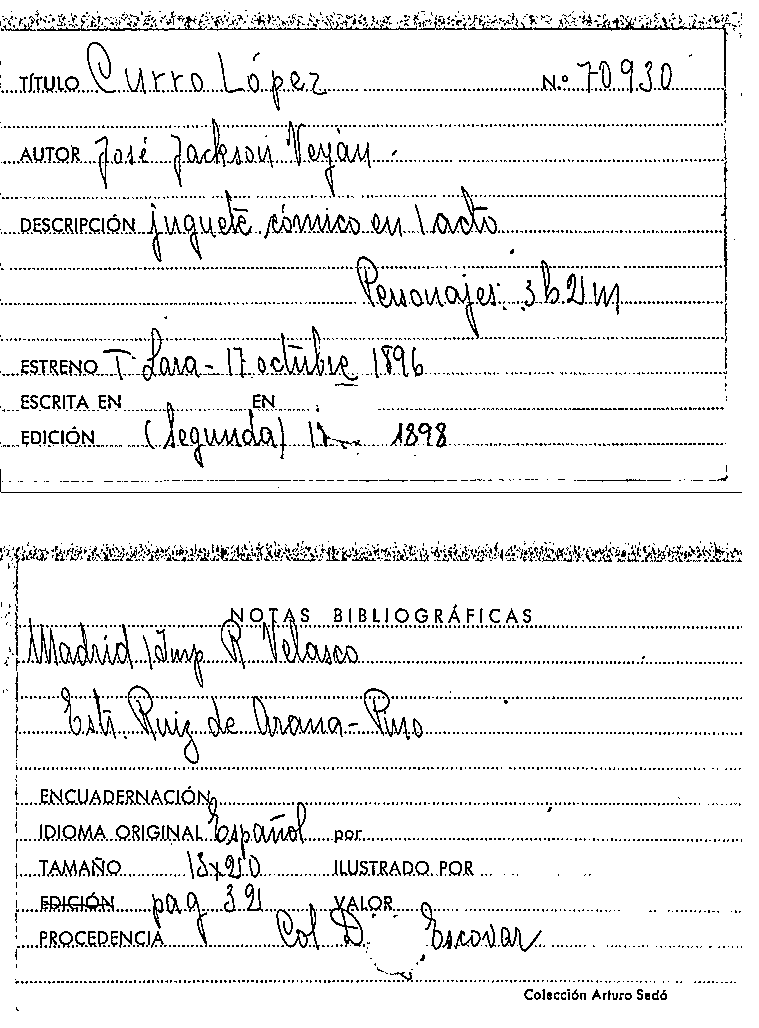 TÍTULO Curro López N.º 70930
AUTOR José Jackson Veyán.
DESCRIPCIÓN juguete cómico en 1 acto
Personajes: 3h. 2m
ESTRENO T Lara - 17 octubre 1896
ESCRITA EN EN
EDICIÓN (Segunda) 1898
NOTAS BIBLIOGRÁFICAS
Madrid / Imp R Velasco
Estr. Ruiz de Arana - Pino
ENCUADERNACIÓN
IDIOMA ORIGINAL Español por
TAMAÑO 13x20 ILUSTRADO POR
EDICIÓN pag 32 VALOR
PROCEDENCIA Col D. Escovar
Colección Arturo Sedó